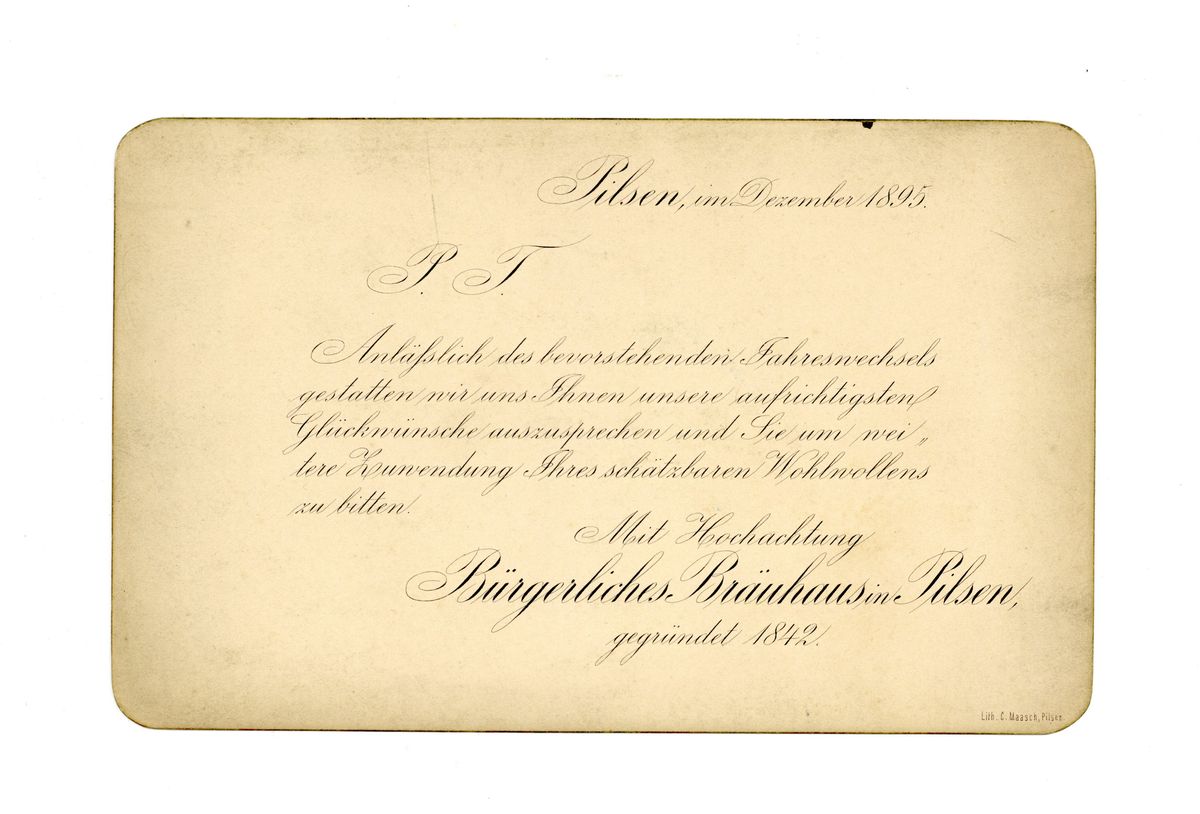 Pilsen, im Dezember 1895.
P. T.
Anläßlich des bevorstehenden Jahreswechsels
gestatten wir uns Ihnen unsere aufrichtigsten
Glückwünsche auszusprechen und Sie um wei„
tere Zuwendung Ihres schätzbaren Wohlwollens
zu bitten.
Mit Hochachtung
Bürgerliches Bräuhaus in Pilsen,
gegründet 1842.
Lith. C. Maasch, Pilsen